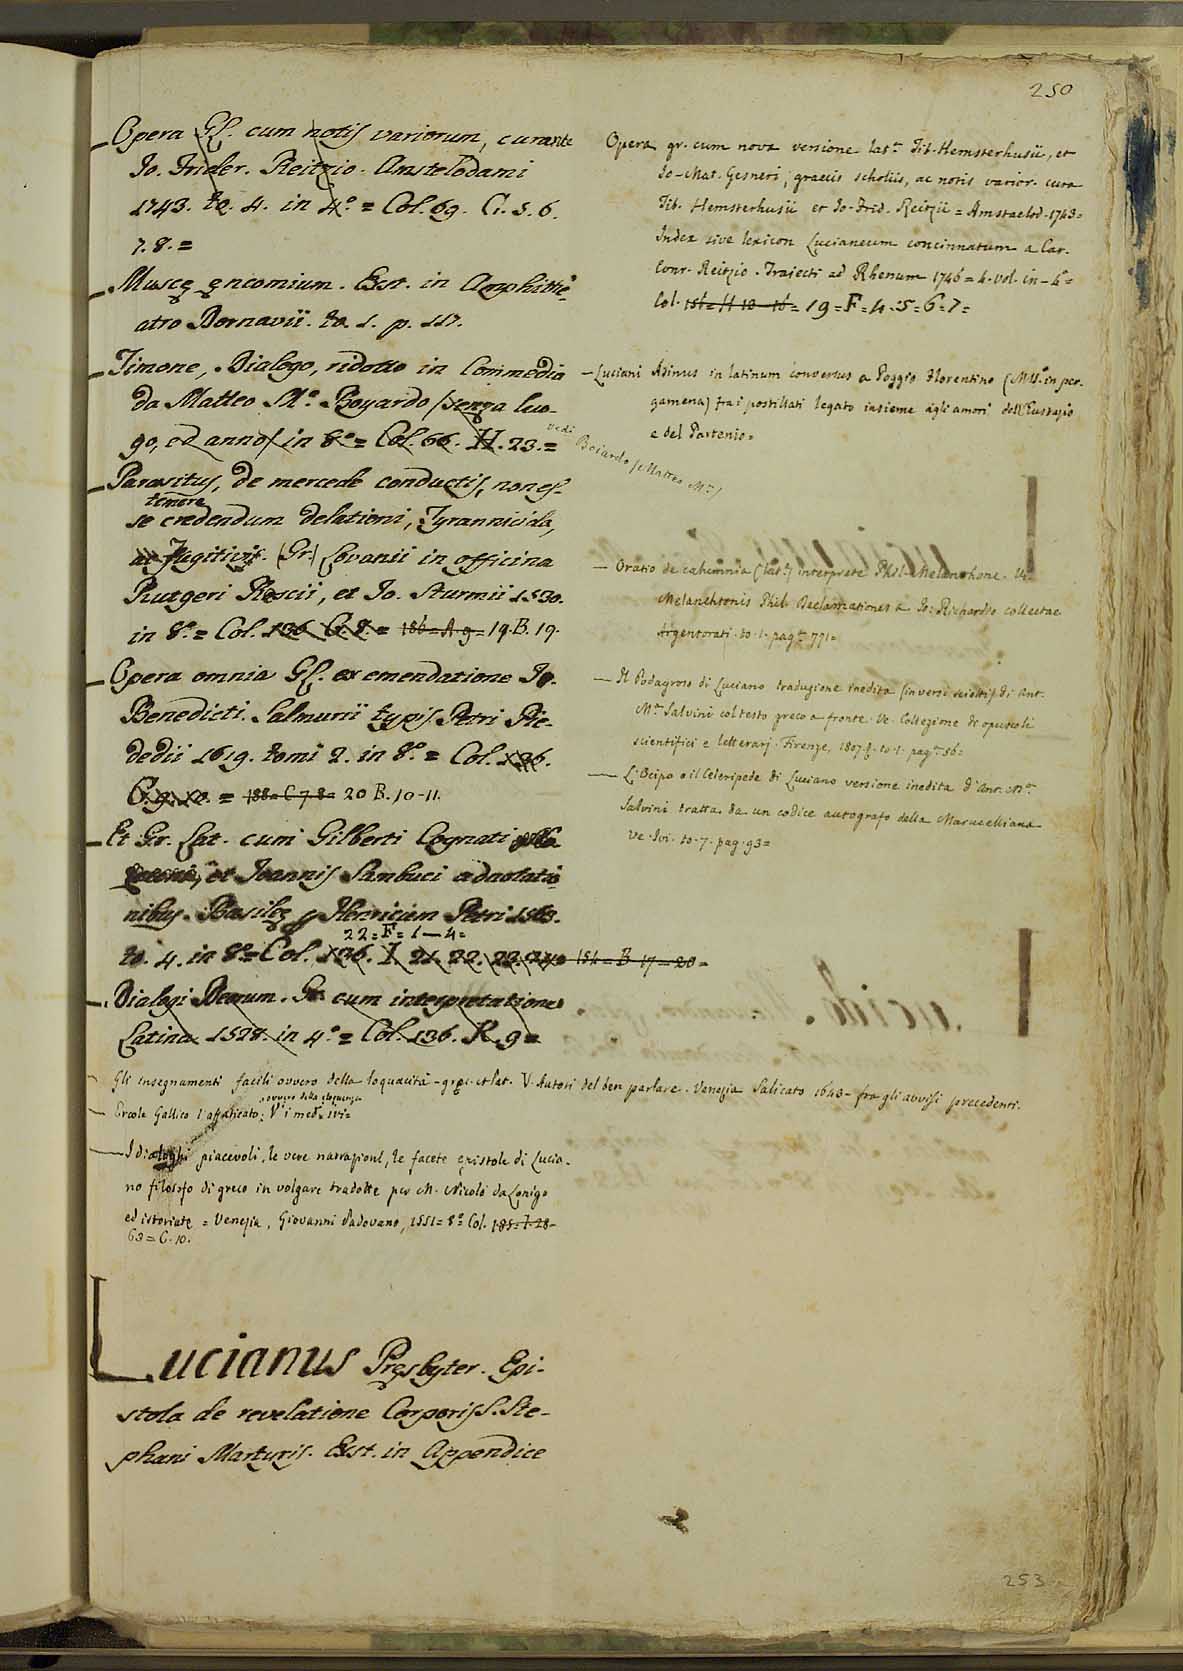 250
Opera GL. cum notis variorum, curante
Jo. Frider. Reitzio. Amstelodami
1743. to. 4. in 4.° = Col. 69. G. 5. 6.
7. 8. =
Muscę ęncomium. Exst. in Amphithe-
atro Dornavii. to. 1. p. 117.
Timone, Dialogo, ridotto in Commedia
da Matteo M.ª Boyardo (senza luo-
go, ed anno) in 8.° = Col. 66. H. 23. = vedi
Boiardo (Matteo M.ª)
Parasitus, de mercede conductis, non es-
temere
se credendum delationi, Tyrannicida,
ac Fugitivis. (Gr.) Lovanii in officina
Rutgeri Rescii, et Jo. Sturmii 1530.
in 8.° = Col. 136 G. 8. = 186 = A. 9 = 19. B. 19.
Opera omnia GL. ex emendatione Jo.
Benedicti. Salmurii typis Petri Pie-
dedii 1619. tomi 2. in 8.° = Col. 136.
G. 9. 10. = 188 = C. 7. 8 = 20 B. 10-11.
Et Gr. Lat. cum Gilberti Cognati
et Joannis Sambuci adnotatio-
nibus. Basileę Henricum Petri 1563.
22 = F = 1 — 4 =
to. 4. in 8.° = Col. 136. I 21. 22. 23. 24 = 154 = B 17 = 20 =
Dialogi Deorum. Gr. cum interpretatione
Latina 1528. in 4.° = Col. 136. R. 9 =
Gli insegnamenti facili ovvero della loquacità - gręc. et lat. V. Autori del ben parlare. Venezia Salicato 1643 - fra gli avvisi precedenti.
ovvero della eloquenza
Ercole Gallico l'affaticato; V. i med.i ivi =
I dialoghi piacevoli, le vere narrazioni, le facete epistole di Lucia-
no filosofo di greco in volgare tradotte per M. Nicolò da Lonigo
ed istoriate = Venezia, Giovanni Padovano, 1551 = 8.° Col. 185 = I. 28 -
63 = C. 10.
Lucianus Pręsbyter. Epi-
stola de revelatione Corporis S. Ste-
phani Martyris. Exst. in Appendice
Opera gr. cum nova versione lat.ª Tib. Hemsterhusii, et
Jo-Mat. Gesneri, graecis scholiis, ac notis varior. cura
Tib. Hemsterhusii et Jo. Frid. Reitzii = Amstaelod. 1743 =
Index sive lexicon Lucianeum concinnatum a Car.
Conr. Reitzio. Trajecti ad Rhenum 1746 = 4. vol. in-4.° =
Col. 156 = H 12 - 16 = 19 = F = 4. 5 = 6 = 7 =
Luciani Asinus in latinum conversus a Poggio Florentino (MS.° in per-
gamena) fra i postillati legato insieme agli amori dell'Eustazio
e del Partenio =
Oratio de calumnia (lat.ª) interprete Phil. Melanthone. V.
Melanchtonis Phil. Declamationes a Jo. Richardio collectae
Argentorati. to. 1. pag.ª 771 =
Il Podagroso di Luciano traduzione inedita (in versi sciolti) di Ant.
M.ª Salvini col testo greco a fronte. Ve. Collezione di opuscoli
scientifici e letterarj. Firenze, 1807. to. 1. pag.ª 56 =
L'Ocipo o il Celeripede di Luciano versione inedita d'Ant. M.ª
Salvini tratta da un codice autografo della Marucelliana
Ve. Ivi. to. 7. pag. 93 =
253